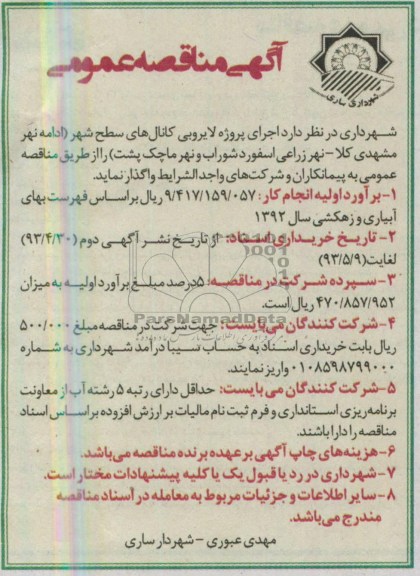 آگهی مناقصه عمومی
شهرداری ساری
شهرداری در نظر دارد اجرای پروژه لایروبی کانال‌های سطح شهر (ادامه نهر
مشهدی کلا - نهر زراعی اسفورد شوراب و نهر ماچک پشت) را از طریق مناقصه
عمومی به پیمانکاران و شرکت‌های واجد الشرایط واگذار نماید.
۱- برآورد اولیه انجام کار: ۹/۴۱۷/۱۵۹/۰۵۷ ریال بر اساس فهرست بهای
آبیاری و زهکشی سال ۱۳۹۲
۲- تاریخ خریداری اسناد: از تاریخ نشر آگهی دوم (۹۳/۴/۳۰)
لغایت (۹۳/۵/۹)
۳- سپرده شرکت در مناقصه: ۵ درصد مبلغ برآورد اولیه به میزان
۴۷۰/۸۵۷/۹۵۲ ریال است.
۴- شرکت کنندگان می‌بایست: جهت شرکت در مناقصه مبلغ ۵۰۰/۰۰۰
ریال بابت خریداری اسناد به حساب سیبا درآمد شهرداری به شماره
۰۱۰۸۵۹۸۷۹۹۰۰۰ واریز نمایند.
۵- شرکت کنندگان می‌بایست: حداقل دارای رتبه ۵ رشته آب از معاونت
برنامه‌ریزی استانداری و فرم ثبت نام مالیات بر ارزش افزوده بر اساس اسناد
مناقصه را دارا باشند.
۶- هزینه‌های چاپ آگهی بر عهده برنده مناقصه می‌باشد.
۷- شهرداری در رد یا قبول یک یا کلیه پیشنهادات مختار است.
۸- سایر اطلاعات و جزئیات مربوط به معامله در اسناد مناقصه
مندرج می‌باشد.
مهدی عبوری - شهردار ساری
ParsNamadData